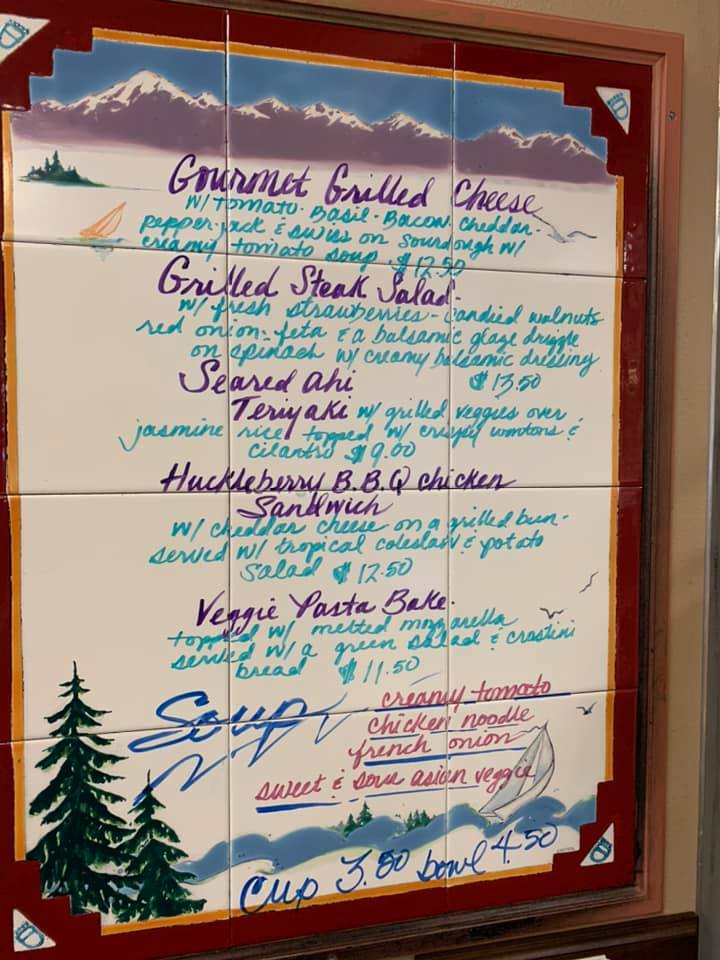 Gourmet Grilled Cheese
w/ tomato - Basil - Bacon, cheddar -
pepper jack & swiss on sourdough w/
creamy tomato soup. $12.50
Grilled Steak Salad -
w/ fresh strawberries - candied walnuts
red onion - feta & a balsamic glaze drizzle
on spinach w/ creamy balsamic dressing
$13.50
Seared Ahi
Teriyaki w/ grilled veggies over
jasmine rice topped w/ crispy wontons &
cilantro $9.00
Huckleberry B.B.Q chicken
Sandwich
w/ cheddar cheese on a grilled bun -
served w/ tropical coleslaw & potato
salad $12.50
Veggie Pasta Bake -
topped w/ melted mozzarella
served w/ a green salad & crostini
bread $11.50
Soup
creamy tomato
chicken noodle
french onion
sweet & sour asian veggie
Cup 3.80 bowl 4.50